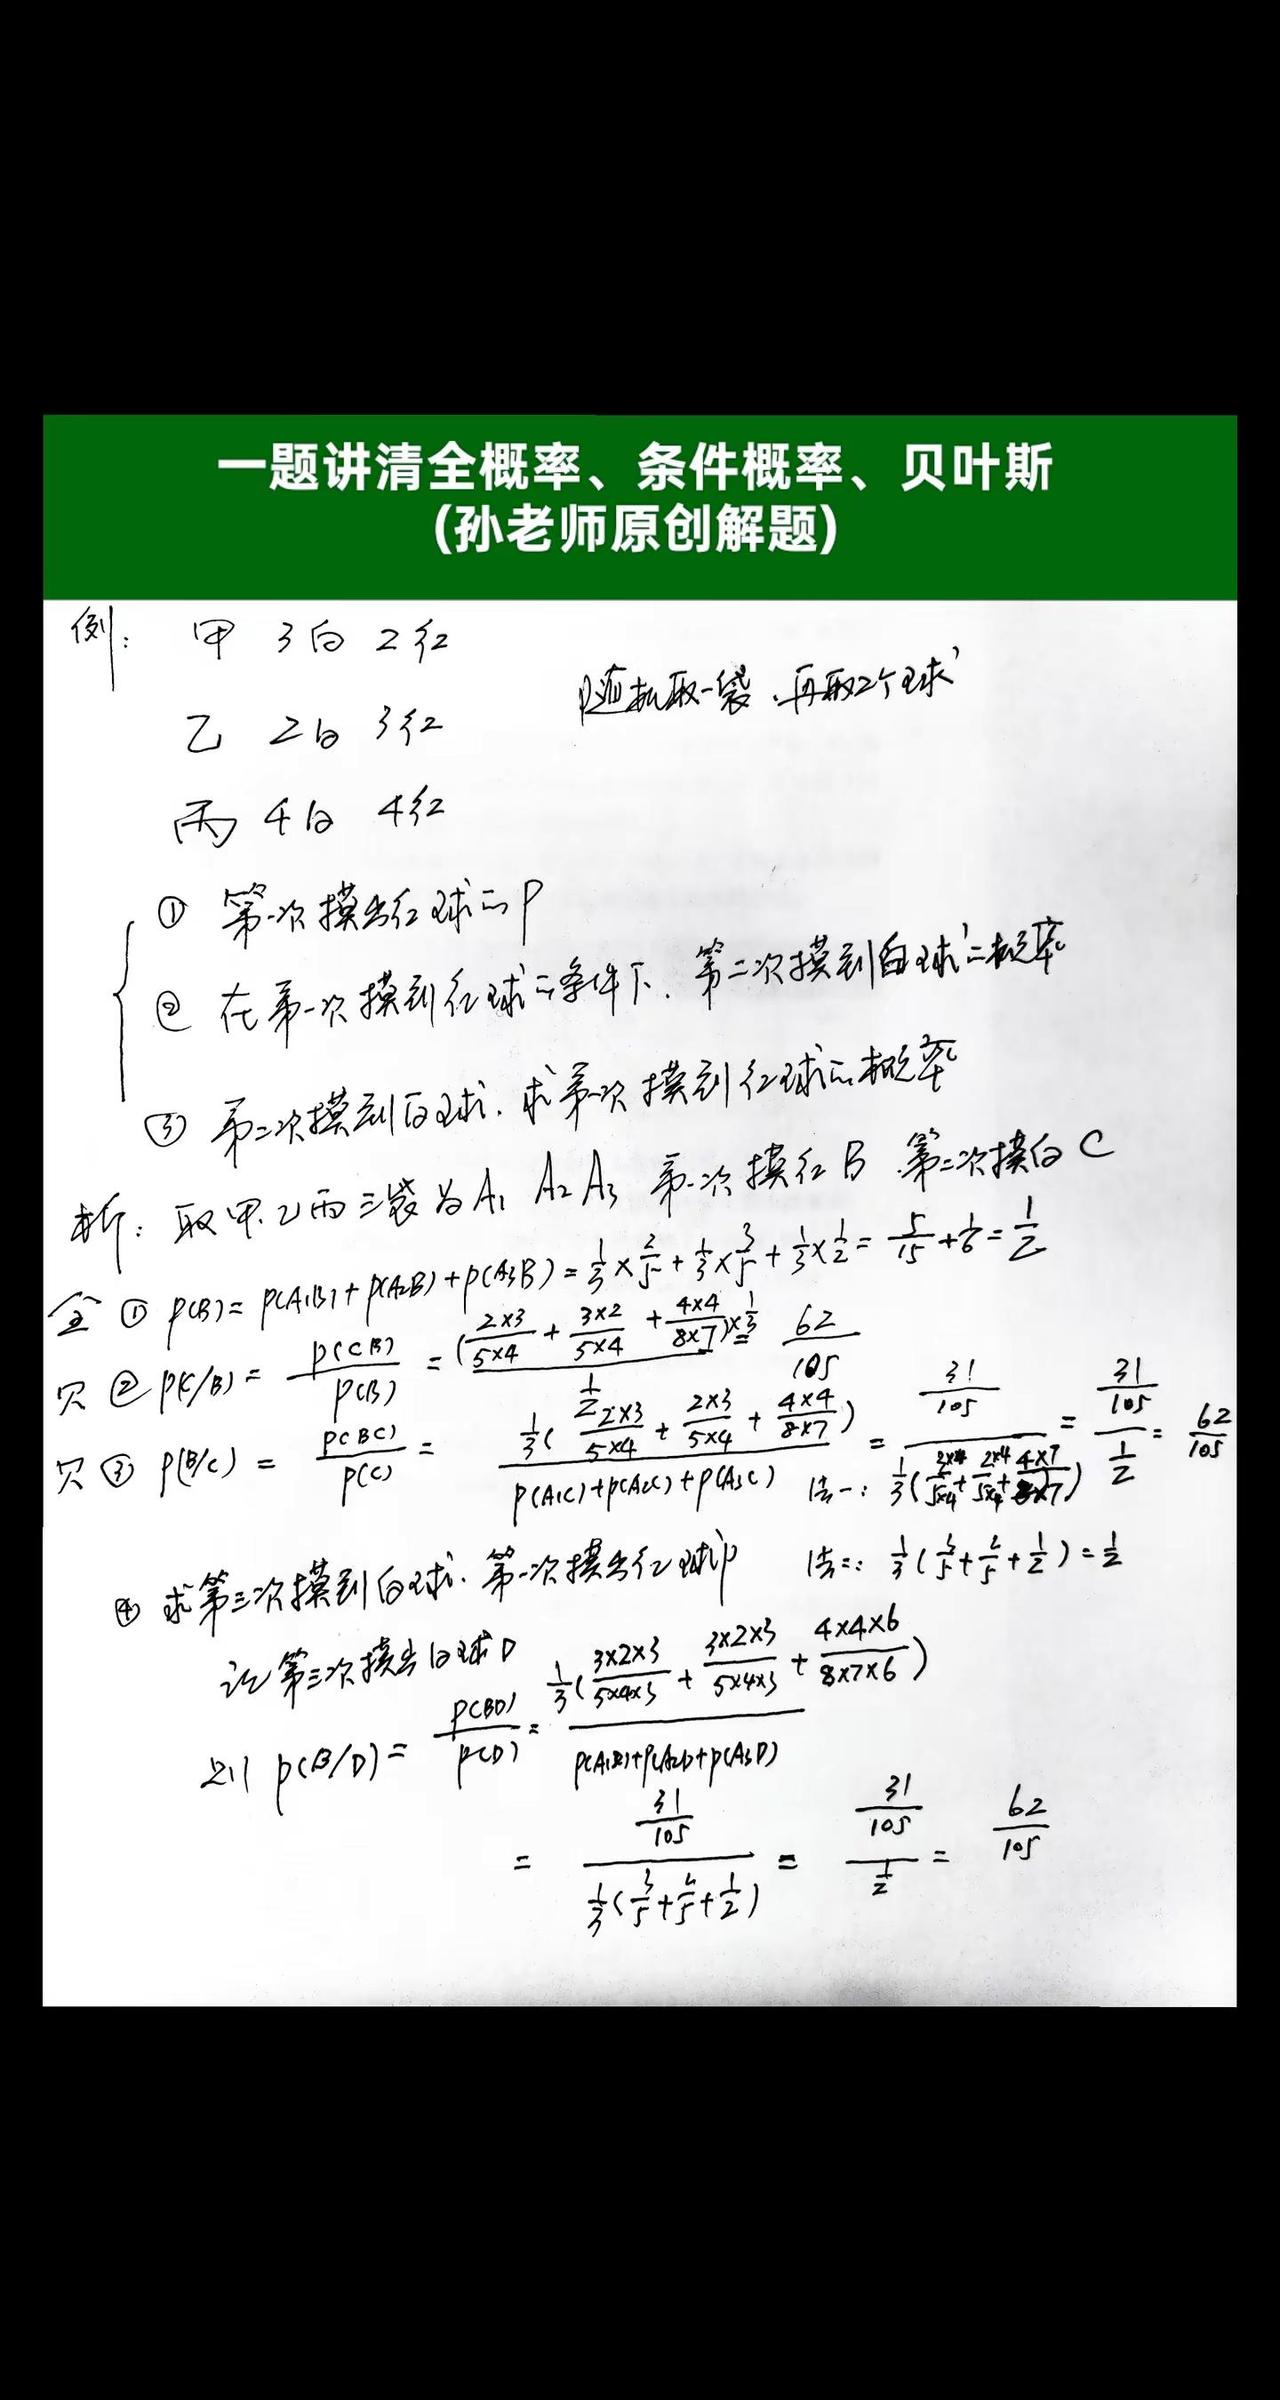 一题讲清全概率、条件概率、贝叶斯
(孙老师原创解题)
例: 甲 3白 2红
随机取一袋.再取2个球
乙 2白 3红
丙 4白 4红
① 第一次摸出红球的P
② 在第一次摸到红球的条件下.第二次摸到白球的概率
③ 第二次摸到白球.求第一次摸到红球的概率
析: 取甲.乙丙三袋为A₁ A₂ A₃ 第一次摸红B.第二次摸白C
全 ① P(B)=P(A₁B)+P(A₂B)+P(A₃B)=1/3×2/5+1/3×3/5+1/3×1/2=5/15+1/6=1/2
贝 ② P(C/B)=P(CB)/P(B)=(2×3/5×4+3×2/5×4+4×4/8×7)×1/3/1/2=62/105
贝 ③ P(B/C)=P(BC)/P(C)=1/3(2×3/5×4+2×3/5×4+4×4/8×7)/P(A₁C)+P(A₂C)+P(A₃C)=31/105/=31/105/1/2=62/105
法一: 1/3(
法二: 1/3(3/5+2/5+1/2)=1/2
④ 求第三次摸到白球.第一次摸出红球P
记第三次摸出白球D
则 P(B/D)=P(BD)/P(D)=1/3(3×2×3/5×4×3+3×2×3/5×4×3+4×4×6/8×7×6)/P(A₁D)+P(A₂D+P(A₃D)
=31/105/1/3(3/5+2/5+1/2)=31/105/1/2=62/105